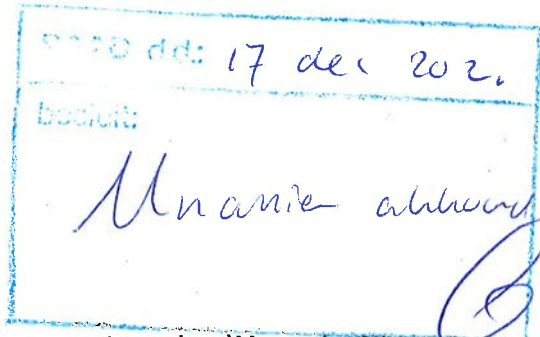 dd: 17 dec 202.
besluit:
Unaniem akkoord